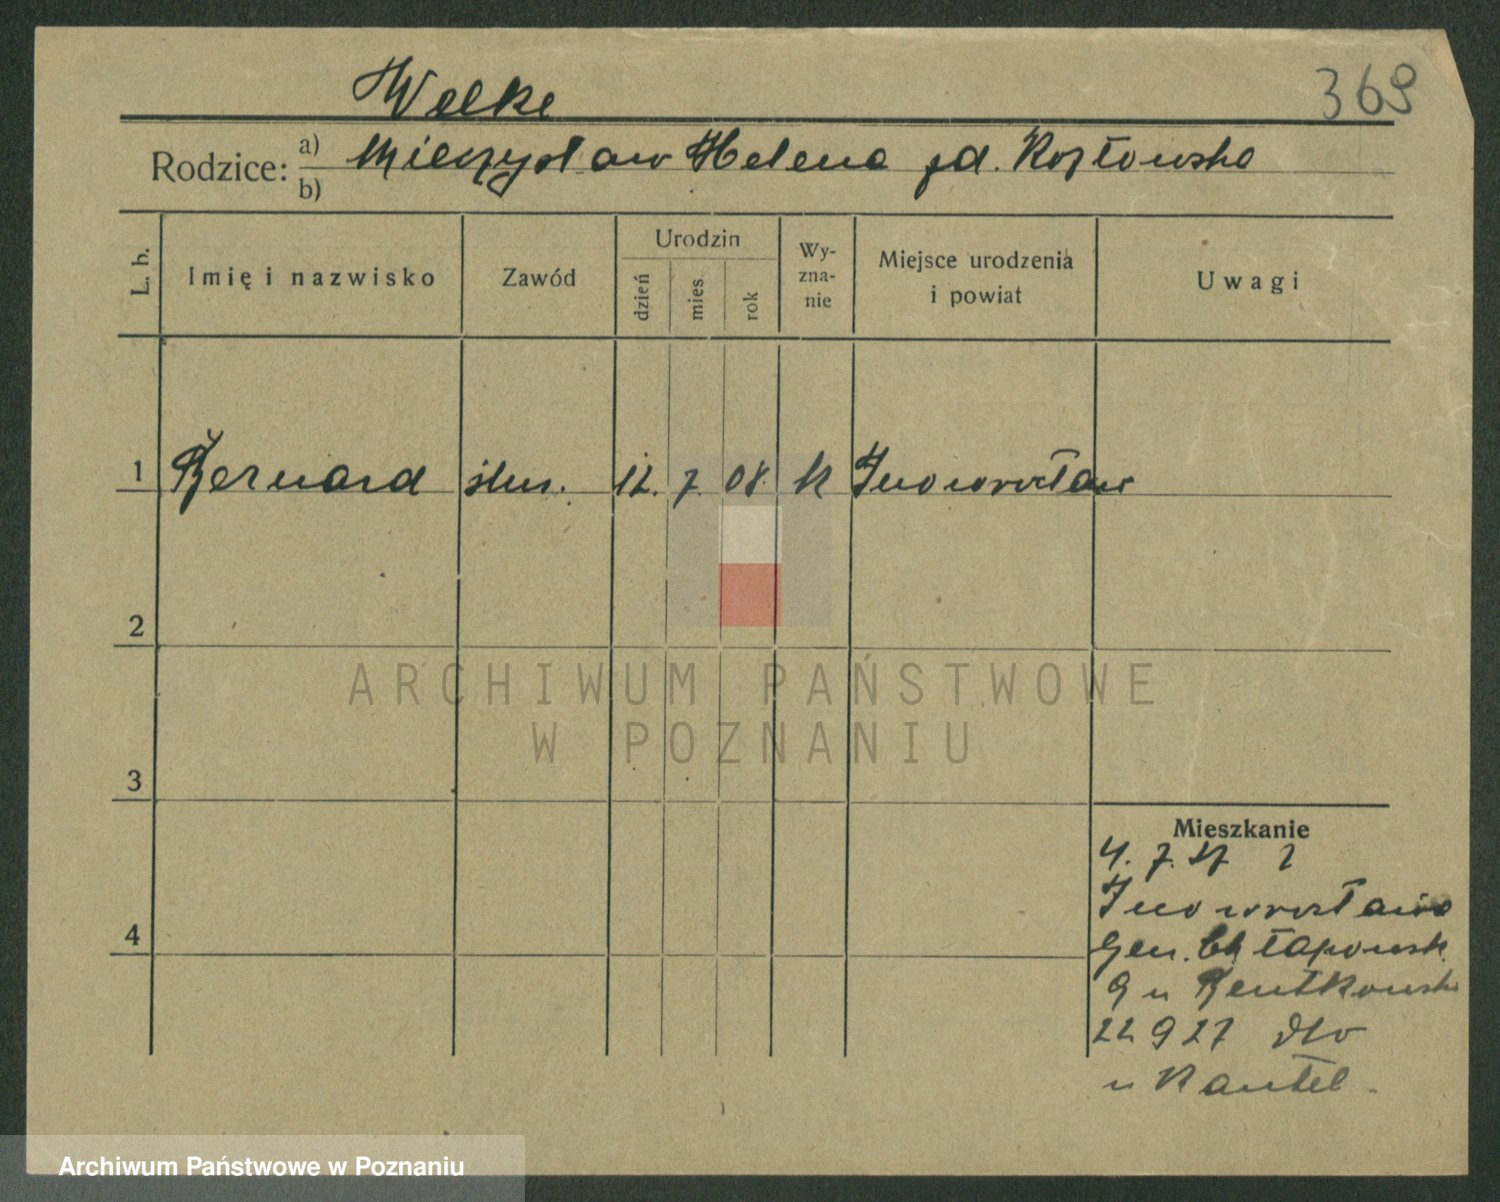 369
Welke
Rodzice: a) Mieczysław Helena zd. Kozłowska
b)
L. b. Imię i nazwisko Zawód Urodzin dzień mies. rok Wy-zna-nie Miejsce urodzenia i powiat Uwagi
1 Bernard ślus. 12. 7. 08. k Inowrocław
2
3
4
Mieszkanie
4. 7. 27
Inowrocławia
Gen. Chłapowsk.
9 u Bentkowsk
22 9 27
u Kantel.
ARCHIWUM PAŃSTWOWE
W POZNANIU
Archiwum Państwowe w Poznaniu